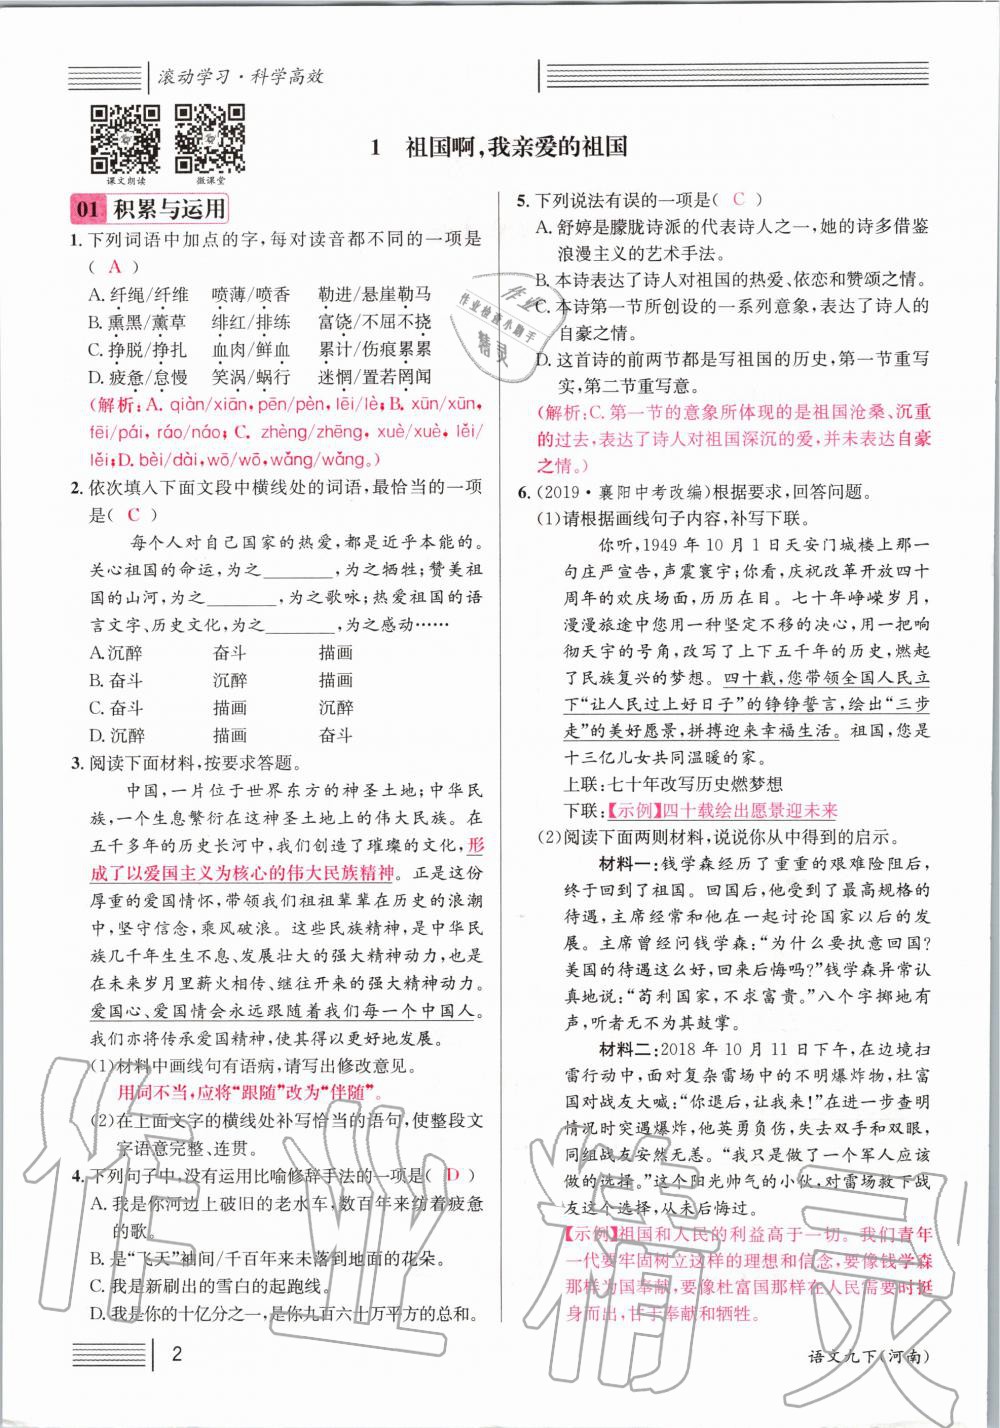 滚动学习·科学高效
课文朗读 微课堂
1 祖国啊,我亲爱的祖国
01 积累与运用
1. 下列词语中加点的字,每对读音都不同的一项是
( A )
A. 纤绳/纤维 喷薄/喷香 勒进/悬崖勒马
B. 熏黑/薰草 绯红/排练 富饶/不屈不挠
C. 挣脱/挣扎 血肉/鲜血 累计/伤痕累累
D. 疲惫/怠慢 笑涡/蜗行 迷惘/置若罔闻
(解析:A. qiàn/xiān,pēn/pèn,lēi/lè;B. xūn/xūn,
fēi/pái,ráo/náo;C. zhèng/zhēng,xuè/xuè,lěi/
lěi;D. bèi/dài,wō/wō,wǎng/wǎng。)
2. 依次填入下面文段中横线处的词语,最恰当的一项
是( C )
每个人对自己国家的热爱,都是近乎本能的。
关心祖国的命运,为之________,为之牺牲;赞美祖
国的山河,为之________,为之歌咏;热爱祖国的语
言文字、历史文化,为之________,为之感动……
A. 沉醉 奋斗 描画
B. 奋斗 沉醉 描画
C. 奋斗 描画 沉醉
D. 沉醉 描画 奋斗
3. 阅读下面材料,按要求答题。
中国,一片位于世界东方的神圣土地;中华民
族,一个生息繁衍在这神圣土地上的伟大民族。在
五千多年的历史长河中,我们创造了璀璨的文化,形
成了以爱国主义为核心的伟大民族精神。正是这份
厚重的爱国情怀,带领我们祖祖辈辈在历史的浪潮
中,坚守信念,乘风破浪。这些民族精神,是中华民
族几千年生生不息、发展壮大的强大精神动力,也是
在未来岁月里薪火相传、继往开来的强大精神动力。
爱国心、爱国情会永远跟随着我们每一个中国人。
我们亦将传承爱国精神,使祖国得以更好地发展。
(1)材料中画线句有语病,请写出修改意见。
用词不当,应将“跟随”改为“伴随”。
(2)在上面文字的横线处补写恰当的语句,使整段文
字语意完整、连贯。
4. 下列句子中,没有运用比喻修辞手法的一项是( D )
A. 我是你河边上破旧的老水车,数百年来纺着疲惫
的歌。
B. 是“飞天”袖间/千百年来未落到地面的花朵。
C. 我是新刷出的雪白的起跑线。
D. 我是你的十亿分之一,是你九百六十万平方的总和。
5. 下列说法有误的一项是( C )
A. 舒婷是朦胧诗派的代表诗人之一,她的诗多借鉴
浪漫主义的艺术手法。
B. 本诗表达了诗人对祖国的热爱、依恋和赞颂之情。
C. 本诗第一节所创设的一系列意象,表达了诗人的
自豪之情。
D. 这首诗的前两节都是写祖国的历史,第一节重写
实,第二节重写意。
(解析:C. 第一节的意象所体现的是祖国沧桑、沉重
的过去,表达了诗人对祖国深沉的爱,并未表达自豪
之情。)
6. (2019·襄阳中考改编)根据要求,回答问题。
(1)请根据画线句子内容,补写下联。
你听,1949 年 10 月 1 日天安门城楼上那一
句庄严宣告,声震寰宇;你看,庆祝改革开放四十
周年的欢庆场面,历历在目。七十年峥嵘岁月,
漫漫旅途中您用一种坚定不移的决心,用一曲
响彻天宇的号角,改写了上下五千年的历史,燃起
了民族复兴的梦想。四十载,您带领全国人民立
下“让人民过上好日子”的铮铮誓言,绘出“三步
走”的美好愿景,拼搏迎来幸福生活。祖国,您是
十三亿儿女共同温暖的家。
上联:七十年改写历史燃梦想
下联:【示例】四十载绘出愿景迎未来
(2)阅读下面两则材料,说说你从中得到的启示。
材料一:钱学森经历了重重的艰难险阻后,
终于回到了祖国。回国后,他受到了最高规格的
待遇,主席经常和他在一起讨论国家以后的发
展。主席曾经问钱学森:“为什么要执意回国?
美国的待遇这么好,回来后悔吗?”钱学森异常认
真地说:“苟利国家,不求富贵。”八个字掷地有
声,听者无不为其鼓掌。
材料二:2018 年 10 月 11 日下午,在边境扫
雷行动中,面对复杂雷场中的不明爆炸物,杜富
国对战友大喊:“你退后,让我来!”在进一步查明
情况时突遇爆炸,他英勇负伤,失去双手和双眼,
同组战友安然无恙。“我只是做了一个军人应该
做的。”这个阳光帅气的小伙,对雷场救下战
友这个选择,从未后悔过。
【示例】祖国和人民的利益高于一切。我们青年
一代要牢固树立这样的理想和信念,要像钱学森
那样为国奉献,要像杜富国那样在人民需要时挺
身而出,甘于奉献和牺牲。
2
语文九下(河南)
作业
作业检查小助手
精灵
作业精灵